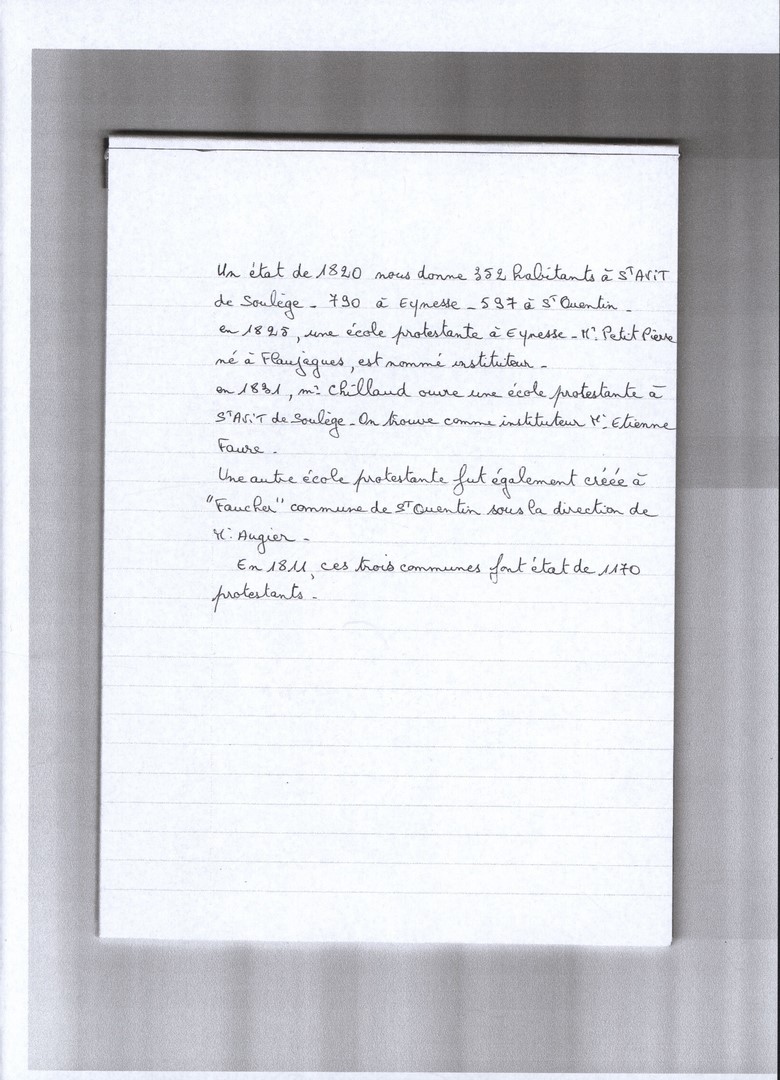 Un état de 1820 nous donne 352 habitants à St AVIT
de Soulège - 790 à Eynesse - 597 à St Quentin -
en 1825, une école protestante à Eynesse - Mr. Petit Pierre
né à Flaujagues, est nommé instituteur -
en 1831, mr Chillaud ouvre une école protestante à
St AViT de Soulège - On trouve comme instituteur Mr. Etienne
Faure -
Une autre école protestante fut également créée à
"Faucher" commune de St Quentin sous la direction de
Mr. Augier -
En 1811, ces trois communes font état de 1170
protestants -